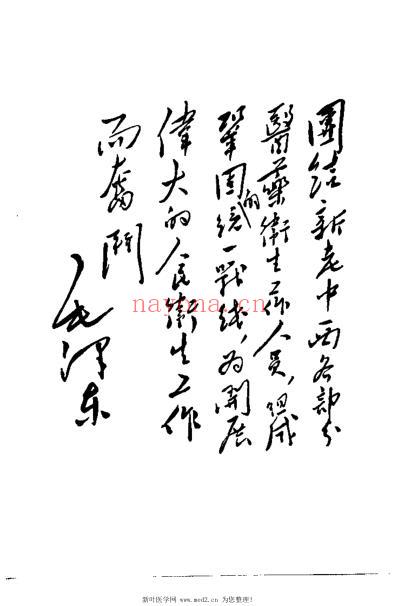 團结新老中西各部分
醫藥衛生工作人員，组成
鞏固的统一戰线，为開展
偉大的人民衛生工作
而奮鬥
毛泽东
nayona.cn
新叶医学网 www.med2.cn 为您整理!